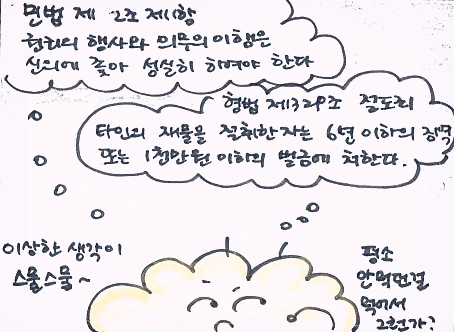 민법 제 2조 제1항
권리의 행사와 의무의 이행은
신의에 좇아 성실히 하여야 한다
형법 제329조 절도죄
타인의 재물을 절취한자는 6년 이하의 징역
또는 1천만원 이하의 벌금에 처한다.
이상한 생각이
스물스물~
평소
안먹던걸
먹어서
그런가?